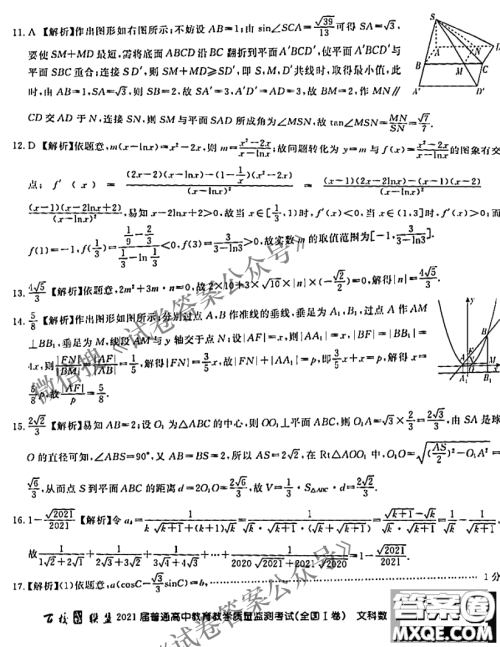 11. A 【解析】作出图形如右图所示;不妨设 AB=1;由 sin∠SCA=√39/13 可得 SA=√3,
要使 SM+MD 最短,需将底面 ABCD 沿 BC 翻折到平面 A'BCD',使平面 A'BCD' 与
平面 SBC 重合;连接 SD',则 SM+MD≥SD',即 S,M,D' 共线时,取得最小值,此
时,由 AB=1,SA=√3,则 SB=2,故 SA'=3,A'D'=AD=3,故 BM=2,作 MN∥
CD 交 AD 于 N,连接 SN,则 SM 与平面 SAD 所成角为∠MSN,故 tan∠MSN=MN/SN=√7/7.
12. D 【解析】依题意,m(x−lnx)=x²−2x,则 m=(x²−2x)/(x−lnx);故问题转化为 y=m 与 f(x)=(x²−2x)/(x−lnx) 的图象有交
点; f'(x)=[(2x−2)(x−lnx)−(1−1/x)(x²−2x)]/(x−lnx)²=[(x−1)(2x−2lnx)−(x−1)(x−2)]/(x−lnx)²=
(x−1)(x−2lnx+2)/(x−lnx)²,易知 x−2lnx+2>0,故当 x∈[1/3,1)时,f'(x)<0,当 x∈(1,3]时,f'(x)>0;而
f(1)=−1,f(1/3)=(1/9−2/3)/(1/3−ln 1/3)<0,f(3)=3/(3−ln3)>0,故实数 m 的取值范围为[−1,3/(3−ln3)].
13. 4√5/3 【解析】依题意,2m²+3m·n=0,故 2×10+3×√10×|n|×(−√2/2)=0,解得|n|=4√5/3.
14. 5/8 【解析】作出图形如图所示;分别过点 A,B 作准线的垂线,垂足为 A₁,B₁,过点 A 作 AM
⊥BB₁,垂足为 M,线段 AM 与 y 轴交于点 N;设|AF|=x,则|AA₁|=x,|BF|=|BB₁|=
4x,则|FN|/|BM|=|AF|/|AB|=1/5,解得|FN|=3/5x,故|FN|+|AA₁|=p,即3/5x+x=p,解得 x=
5/8p,故|AF|/p=5/8.
15. 2√2/3 【解析】易知 AB=2;设 O₁ 为△ABC 的中心,则 OO₁⊥平面 ABC,则 O₁A=√3×2/3=2√3/3,由 SA 是球
O 的直径可知,∠ABS=90°,又 AB=BS=2,所以 AS=2√2,在 Rt△AOO₁ 中,O₁O=√((AS/2)²−O₁A²)=
√6/3,从而点 S 到平面 ABC 的距离 d=2O₁O=2√6/3,故 V=1/3·S△ABC·d=2√2/3.
16. 1−√2021/2021 【解析】令 aₖ=1/(k√(k+1)+(k+1)√k)=1/(√k·√(k+1)·(√k+√(k+1)))=(√(k+1)−√k)/(√k·√(k+1))=1/√k−1/√(k+1),
故 1/(1√2+2√1)+1/(2√3+3√2)+1/(3√4+4√3)+…+1/(2020√2021+2021√2020)=1−√2021/2021.
17.【解析】(1)依题意,a(cosC−√3/3 sinC)=b,…… 1分
百校联盟 2021 届普通高中教育教学质量监测考试(全国Ⅰ卷) 文科数
微信搜《试卷答案公众号》
《试卷答案公众号》
答案圈